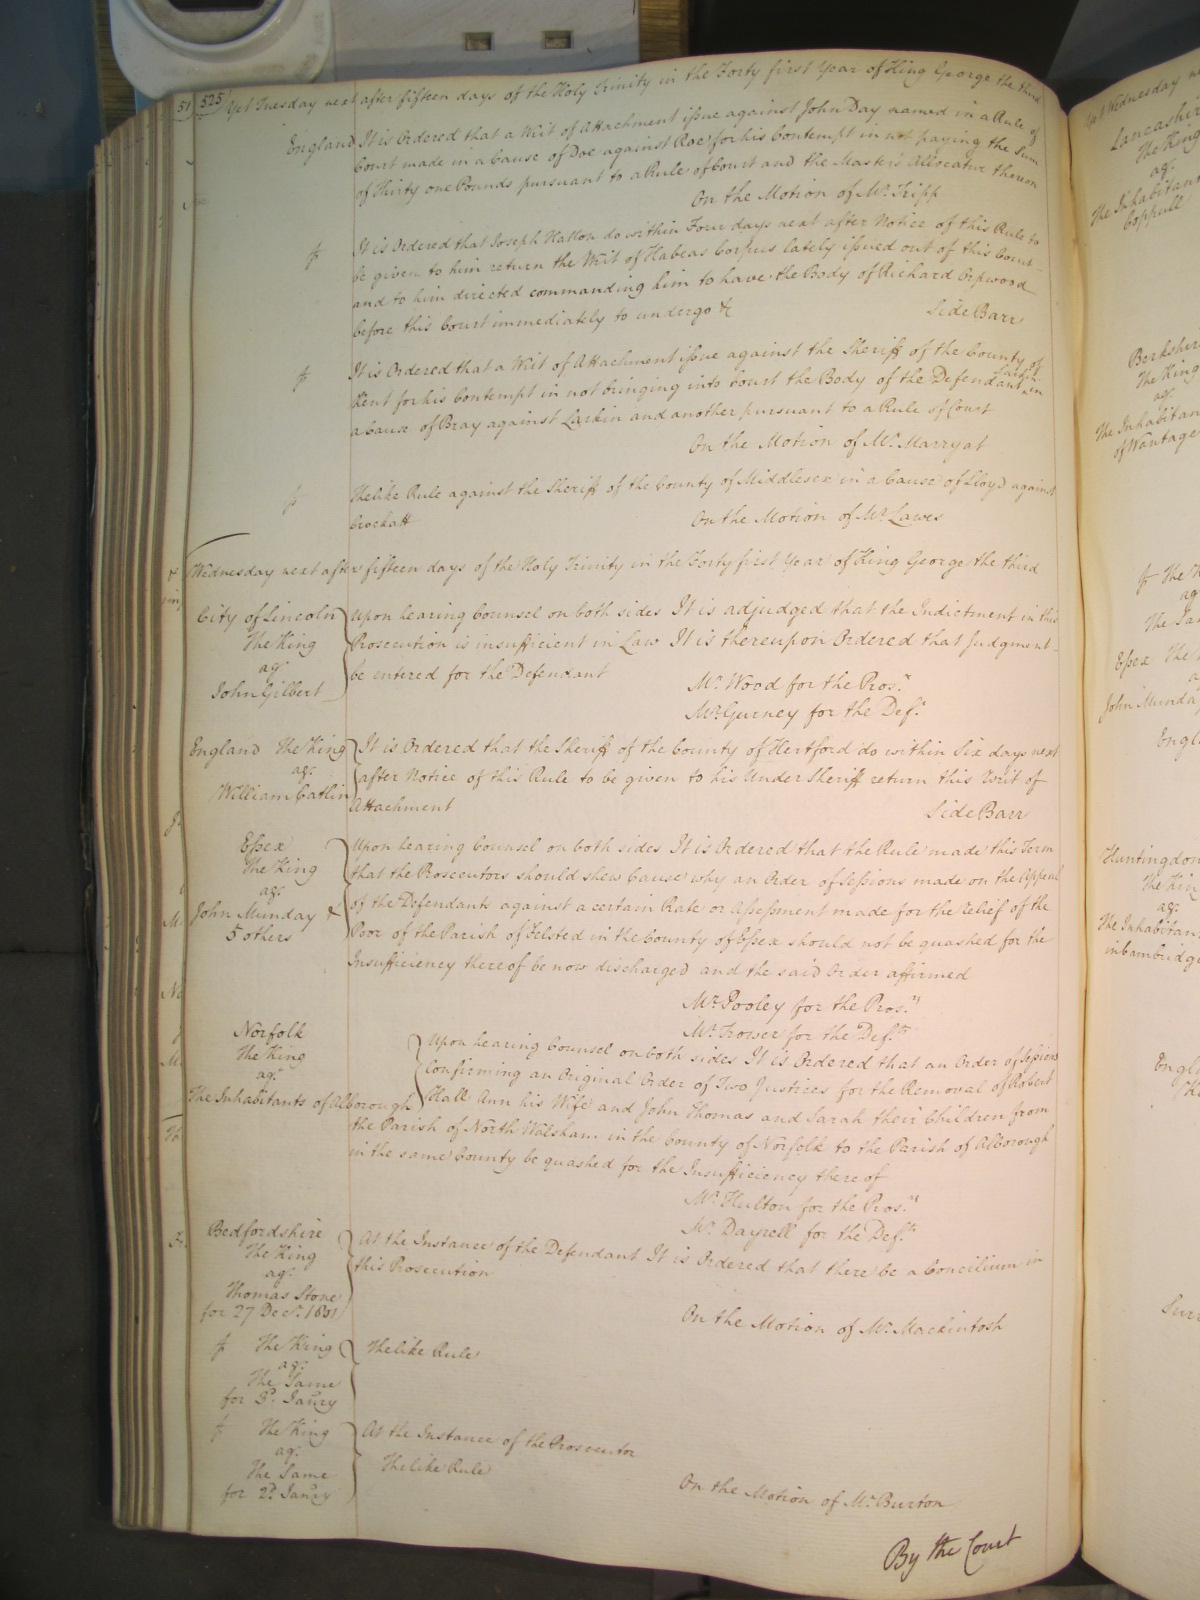 51 525 Yet Tuesday next after fifteen days of the Holy Trinity in the Forty first Year of King George the third
England It is Ordered that a Writ of Attachment issue against John Day named in a Rule of
Court made in a Cause of Doe against Roe for his Contempt in not paying the Sum
of Thirty one Pounds pursuant to a Rule of Court and the Master's Allocatur thereon
On the Motion of Mr. Tripp
It is Ordered that Joseph Hatton do within Four days next after Notice of this Rule to
be given to him return the Writ of Habeas Corpus lately issued out of this Court
and to him directed commanding him to have the Body of Richard Orpwood
before this Court immediately to undergo &c
Side Barr
It is Ordered that a Writ of Attachment issue against the Sheriff of the County of
Kent for his Contempt in not bringing into Court the Body of the Defendant Larkin in
a Cause of Bray against Larkin and another pursuant to a Rule of Court
On the Motion of Mr. Marryat
The like Rule against the Sheriff of the County of Middlesex in a Cause of Lloyd against
Crockatt
On the Motion of Mr. Lawes
Wednesday next after fifteen days of the Holy Trinity in the Forty first Year of King George the third
City of Lincoln
The King
agt.
John Gilbert
Upon hearing Counsel on both sides It is adjudged that the Indictment in this
Prosecution is insufficient in Law It is thereupon Ordered that Judgment
be entered for the Defendant
Mr. Wood for the Pros.r
Mr. Gurney for the Def.t
England The King
agt.
William Catlin
It is Ordered that the Sheriff of the County of Hertford do within Six days next
after Notice of this Rule to be given to his Under Sheriff return this Writ of
Attachment
Side Barr
Essex
The King
agt.
John Munday &
5 others
Upon hearing Counsel on both sides It is Ordered that the Rule made this Term
that the Prosecutors should shew Cause why an Order of Sessions made on the Appeal
of the Defendants against a certain Rate or Assessment made for the relief of the
Poor of the Parish of Felsted in the County of Essex should not be quashed for the
Insufficiency thereof be now discharged and the said Order affirmed
Mr. Pooley for the Pros.rs
Mr. Trower for the Def.ts
Norfolk
The King
agt.
The Inhabitants of Alborough
Upon hearing Counsel on both sides It is Ordered that an Order of Sessions
Confirming an Original Order of Two Justices for the Removal of Robert
Hall Ann his Wife and John Thomas and Sarah their Children from
the Parish of North Walsham in the County of Norfolk to the Parish of Alborough
in the same County be quashed for the Insufficiency thereof
Mr. Hulton for the Pros.rs
Mr. Dayrell for the Def.ts
Bedfordshire
The King
agt.
Thomas Stone
for 27 Decr. 1801
At the Instance of the Defendant It is Ordered that there be a Concilium in
this Prosecution
On the Motion of Mr. Mackintosh
The King
agt.
The Same
for 3d. Jan'ry
The like Rule
The King
agt.
The Same
for 2d. Jan'ry
At the Instance of the Prosecutor
The like Rule
On the Motion of Mr. Burton
By the Court
Lancashire
The King
agt.
The Inhabitants
Coppull
Berkshire
The King
agt.
The Inhabitants
of Wantage
Essex The
John Munday
Huntingdon
The King
agt.
The Inhabitants